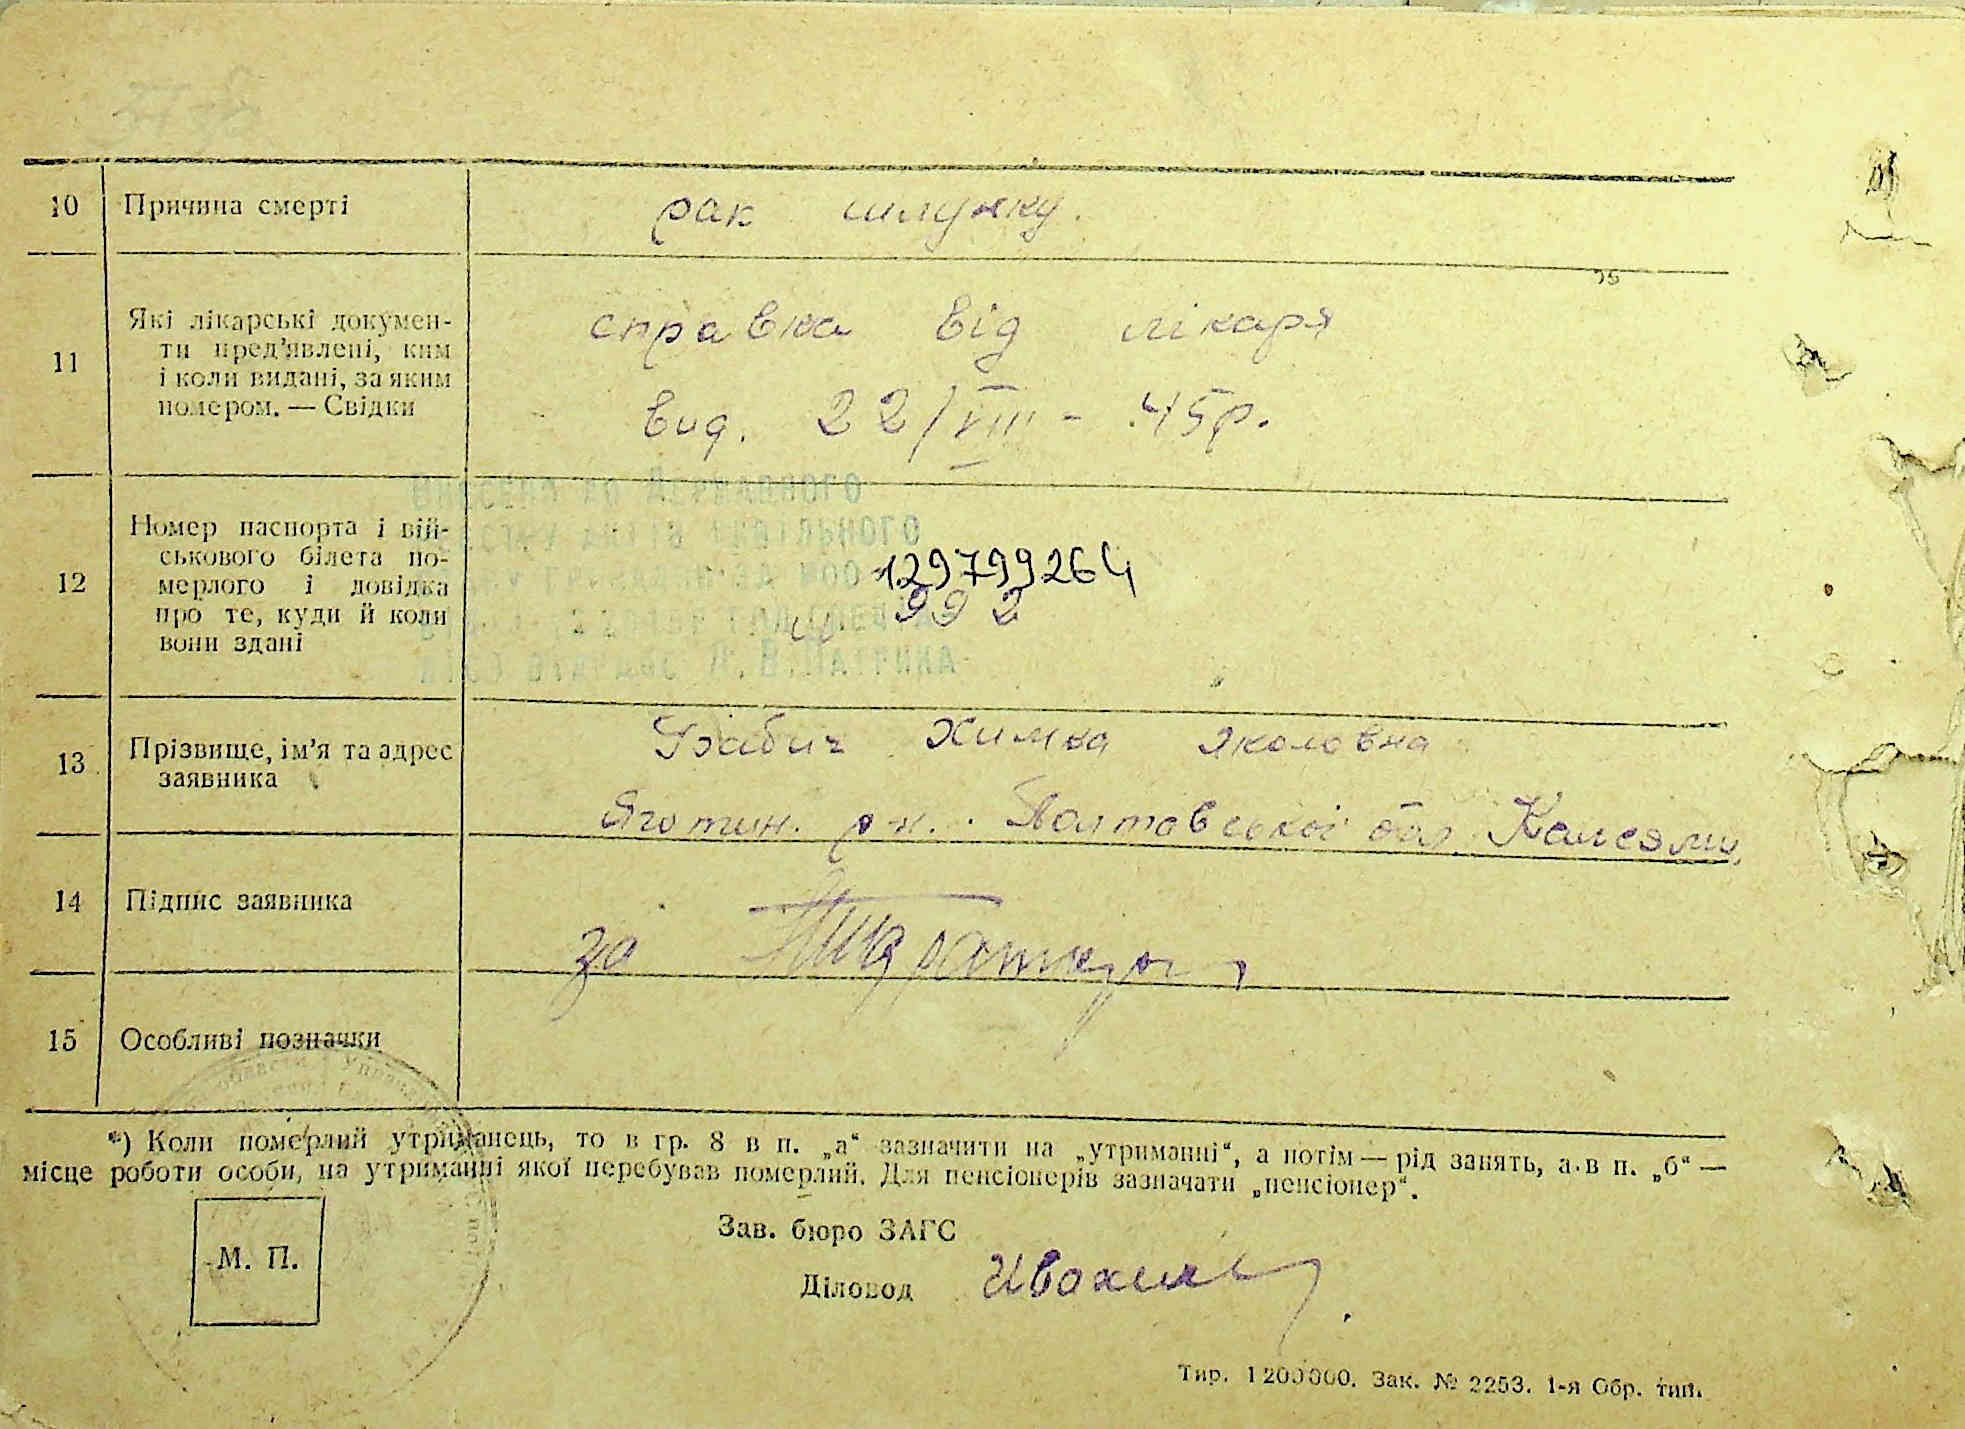 10 Причина смерті рак шлунку.
11 Які лікарські докумен-
ти пред’явлені, ким
і коли видані, за яким
номером. — Свідки
справка від лікаря
вид. 22/VIII - 45р.
12 Номер паспорта і вій-
ськового білета по-
мерлого і довідка
про те, куди й коли
вони здані
Внесено до Державного
129799264
992
13 Прізвище, ім’я та адрес
заявника
Бабич Химка
Яготин. р-н. Полтавської обл.
14 Підпис заявника
за
15 Особливі позначки
*) Коли померлий утриманець, то в гр. 8 в п. „а“ зазначити на „утриманні“, а потім — рід занять, а в п. „б“ —
місце роботи особи, на утриманні якої перебував померлий. Для пенсіонерів зазначати „пенсіонер“.
М. П.
Зав. бюро ЗАГС
Діловод
Тир. 1200000. Зак. № 2253. 1-я Обр. тип.